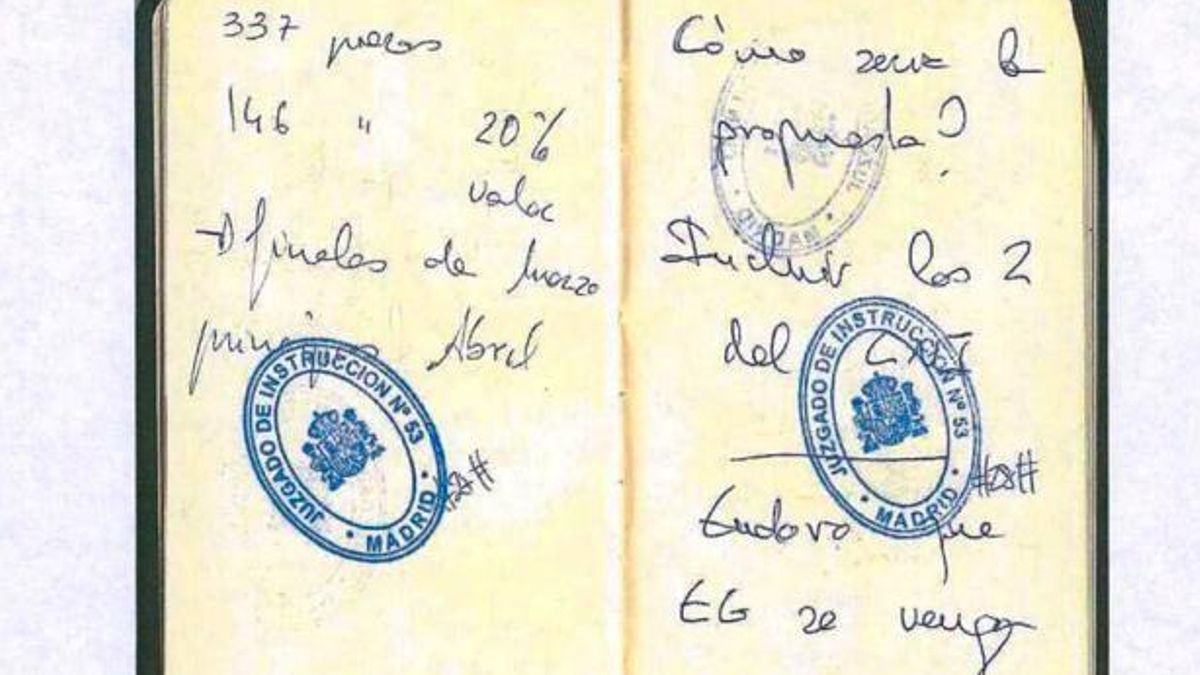 337
146 " 20%
valor
→ finales de Marzo
principios Abril
JUZGADO DE INSTRUCCION Nº 53
· MADRID ·
#28#
Cómo sería la
propuesta?
MADRID
Incluir los 2
del
JUZGADO DE INSTRUCCION Nº 53
· MADRID ·
#28#
que
EG se venga